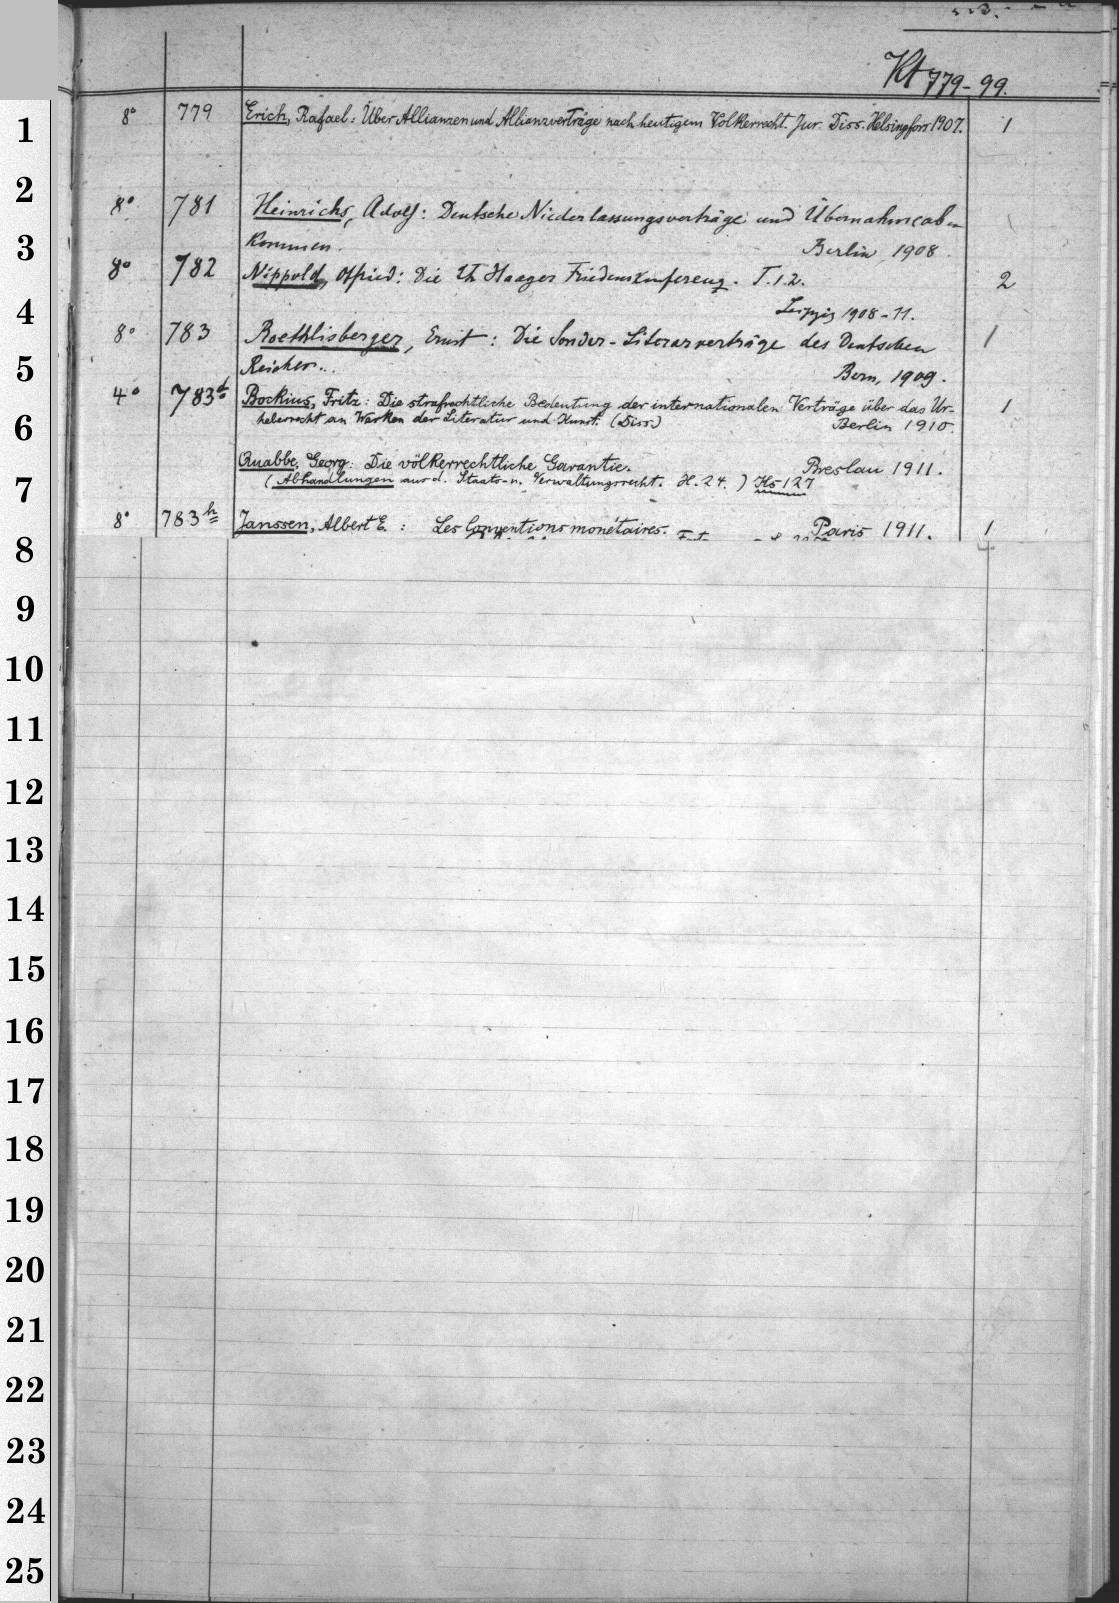 Kt 779-99.
1 8° 779 Erich, Rafael: Über Allianzen und Allianzverträge nach heutigem Völkerrecht. Jur. Diss. Helsingfors 1907. 1
2 8° 781 Heinrichs, Adolf: Deutsche Niederlassungsverträge und Übernahmeab-
3 kommen. Berlin 1908.
8° 782 Nippold, Otfried: Die II. Haager Friedenskonferenz. T. 1. 2. 2
4 Leipzig 1908-11.
8° 783 Roethlisberger, Ernst: Die Sonder-Literarverträge des Deutschen 1
5 Reiches... Bern, 1909.
4° 783d Bockius, Fritz: Die strafrechtliche Bedeutung der internationalen Verträge über das Ur- 1
6 heberrecht an Werken der Literatur und Kunst. (Diss.) Berlin 1910.
Quabbe, Georg: Die völkerrechtliche Garantie. Breslau 1911.
7 (Abhandlungen aus d. Staats- u. Verwaltungsrecht. H. 24.) Hs 127
8° 783h Janssen, Albert E.: Les Conventions monétaires. Paris 1911. 1
8
9
10
11
12
13
14
15
16
17
18
19
20
21
22
23
24
25